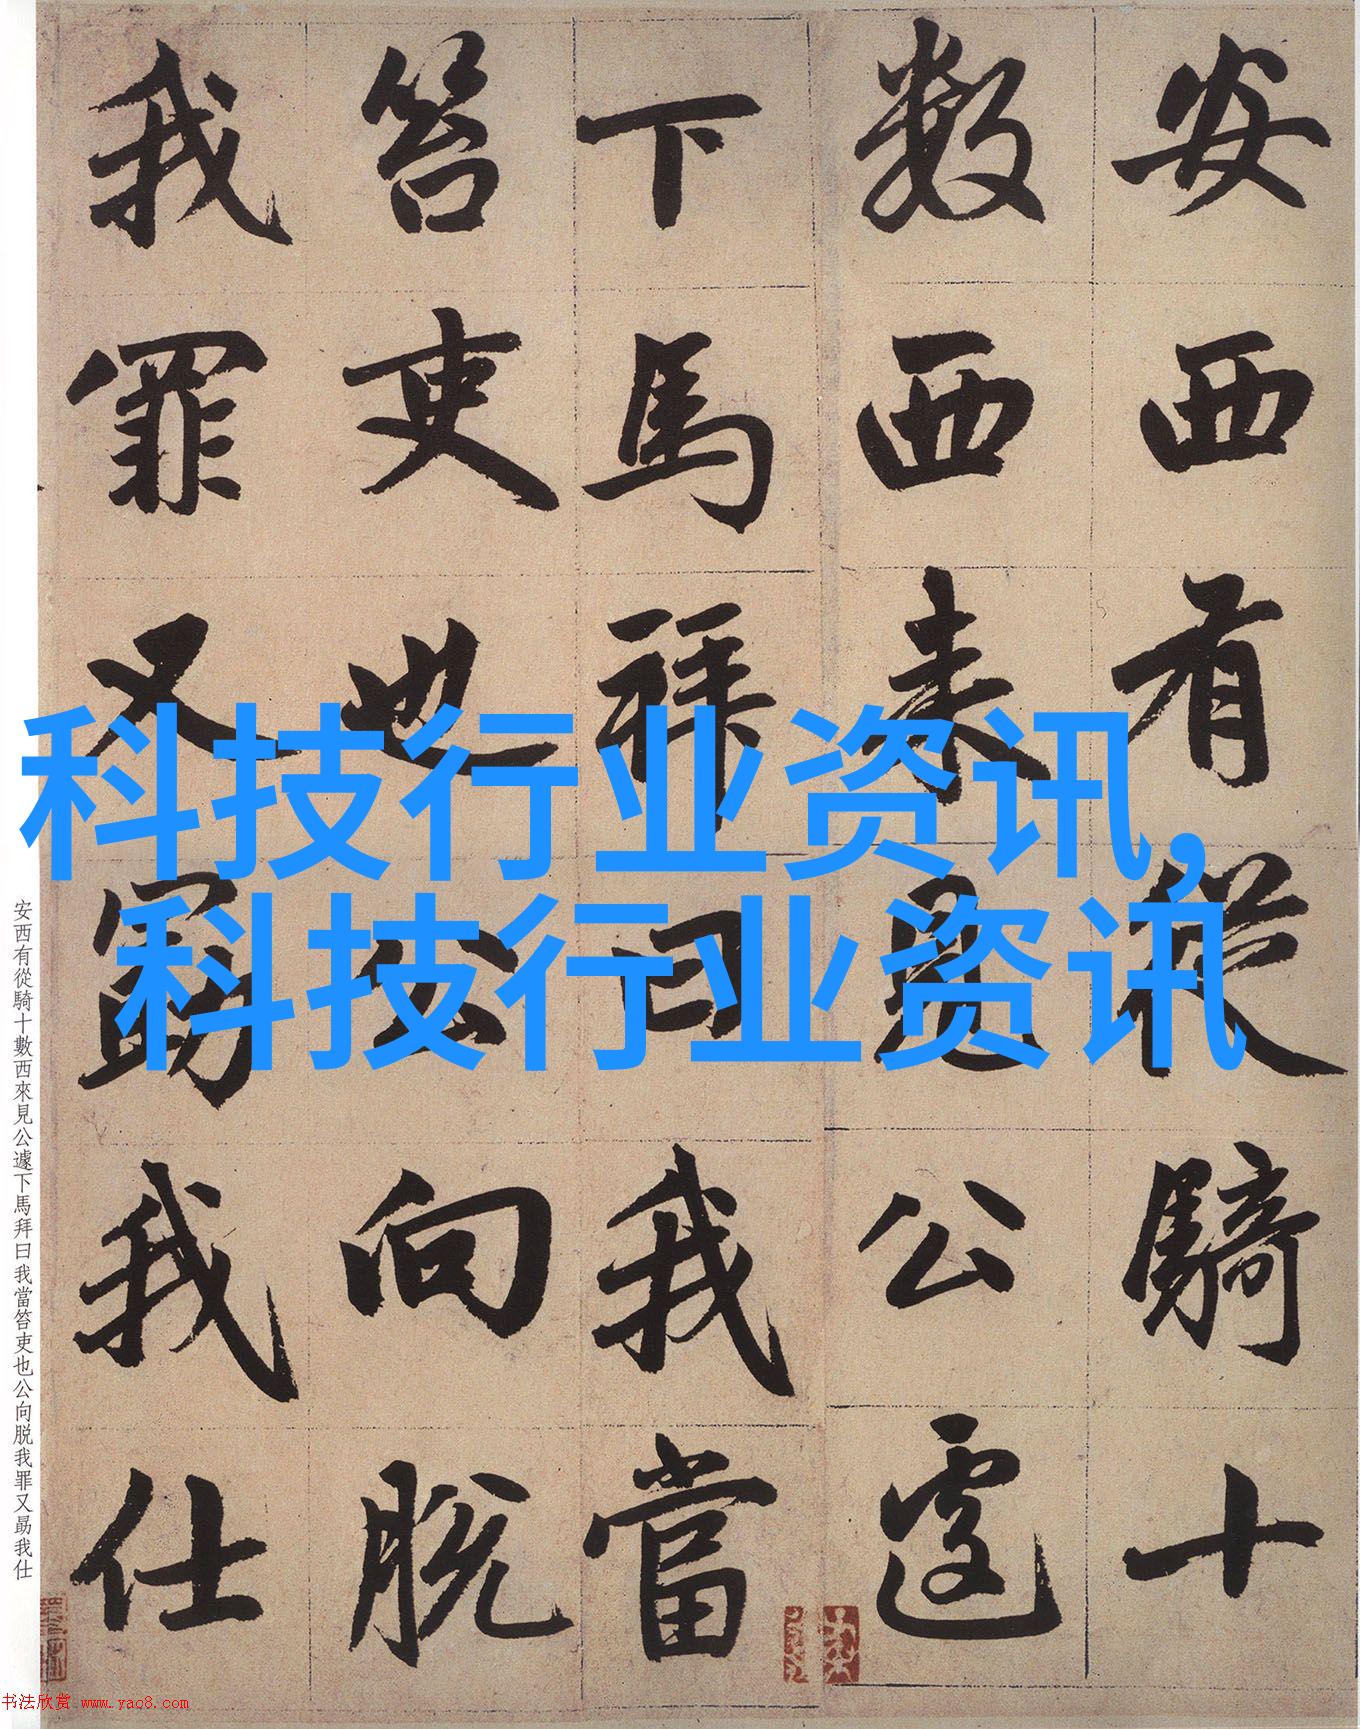 安西有從騎十
數西来見公遽
下馬拜曰我當
笞吏也公向脫
我罪又勗我仕
科技行业资讯,
科技行业资讯
安西有從騎十數西來見公遽下馬拜曰我當笞吏也公向脱我罪又勗我仕
书法欣赏 www.yac8.com